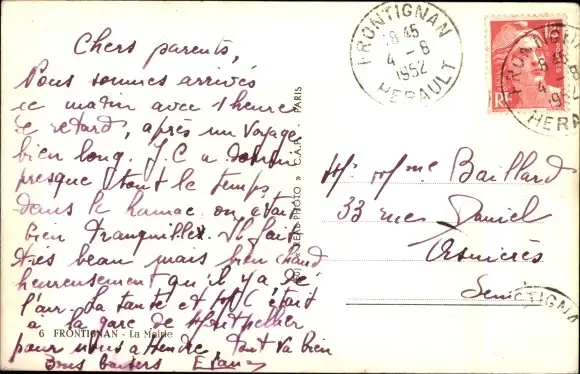 Chers parents,
Nous sommes arrivés
ce matin avec 1 heure
de retard, après un voyage
bien long. J.C a dormi
presque tout le temps
dans le hamac on était
bien tranquilles. Il fait
très beau mais bien chaud
heureusement qu'il y a de
l'air. La tante et M.C était
à la gare de Montpellier
6 FRONTIGNAN - La Mairie
pour nous attendre tout va bien
Bons baisers
PHOTO » C.A.P. - PARIS
FRONTIGNAN
18 45
4 - 8
1952
HERAULT
FRONTIGNAN
18 45
4 - 8
1952
HERAULT
RF
Mr Mme Baillard
33 rue Daniel
Asnières
Seine
FRONTIGNAN